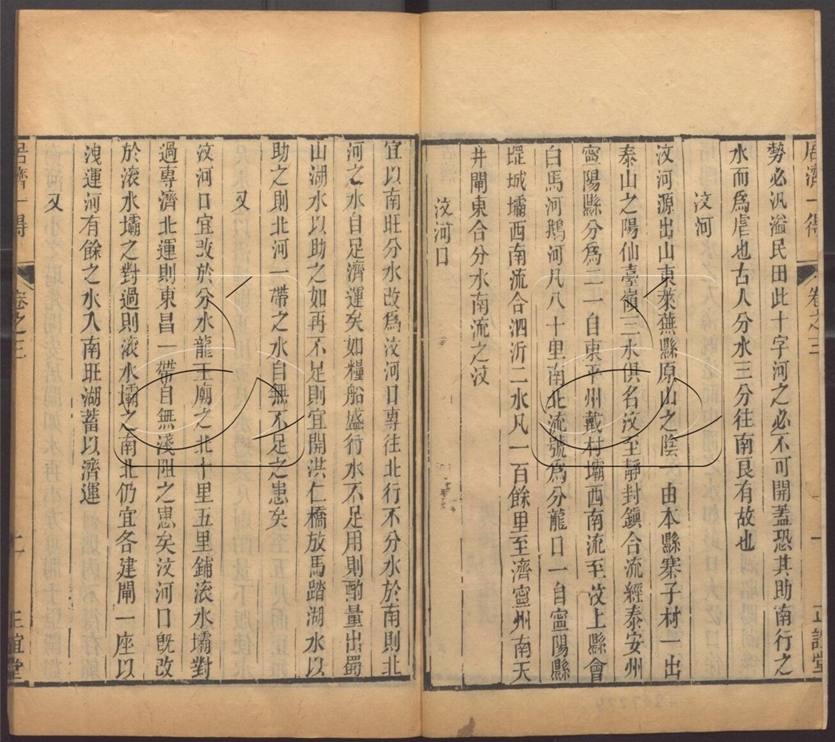 居濟一得
卷之三
一
正誼堂
勢必汎溢民田此十字河之必不可開蓋恐其助南行之
水而為虐也古人分水三分往南良有故也
汶河
汶河源出山東萊蕪縣原山之陰一由本縣寨子村一出
泰山之陽仙臺嶺三水俱名汶至靜封鎮合流經泰安州
寧陽縣分為二一自東平州戴村壩西南流至汶上縣會
白馬河鵝河凡八十里南北流號為分龍口一自寧陽縣
堽城壩西南流合泗沂二水凡一百餘里至濟寧州南天
井閘東合分水南流之汶
汶河口
宜以南旺分水改為汶河口專往北行不分水於南則北
河之水自足濟運矣如糧船盛行水不足用則酌量出蜀
山湖水以助之如再不足則宜開洪仁橋放馬踏湖水以
助之則北河一帶之水自無不足之患矣
又
汶河口宜改於分水龍王廟之北十里五里鋪滾水壩對
過專濟北運則東昌一帶自無淺阻之患矣汶河口既改
於滾水壩之對過則滾水壩之南北仍宜各建閘一座以
洩運河有餘之水入南旺湖蓄以濟運
又
居濟一得
卷之三
二
正誼堂